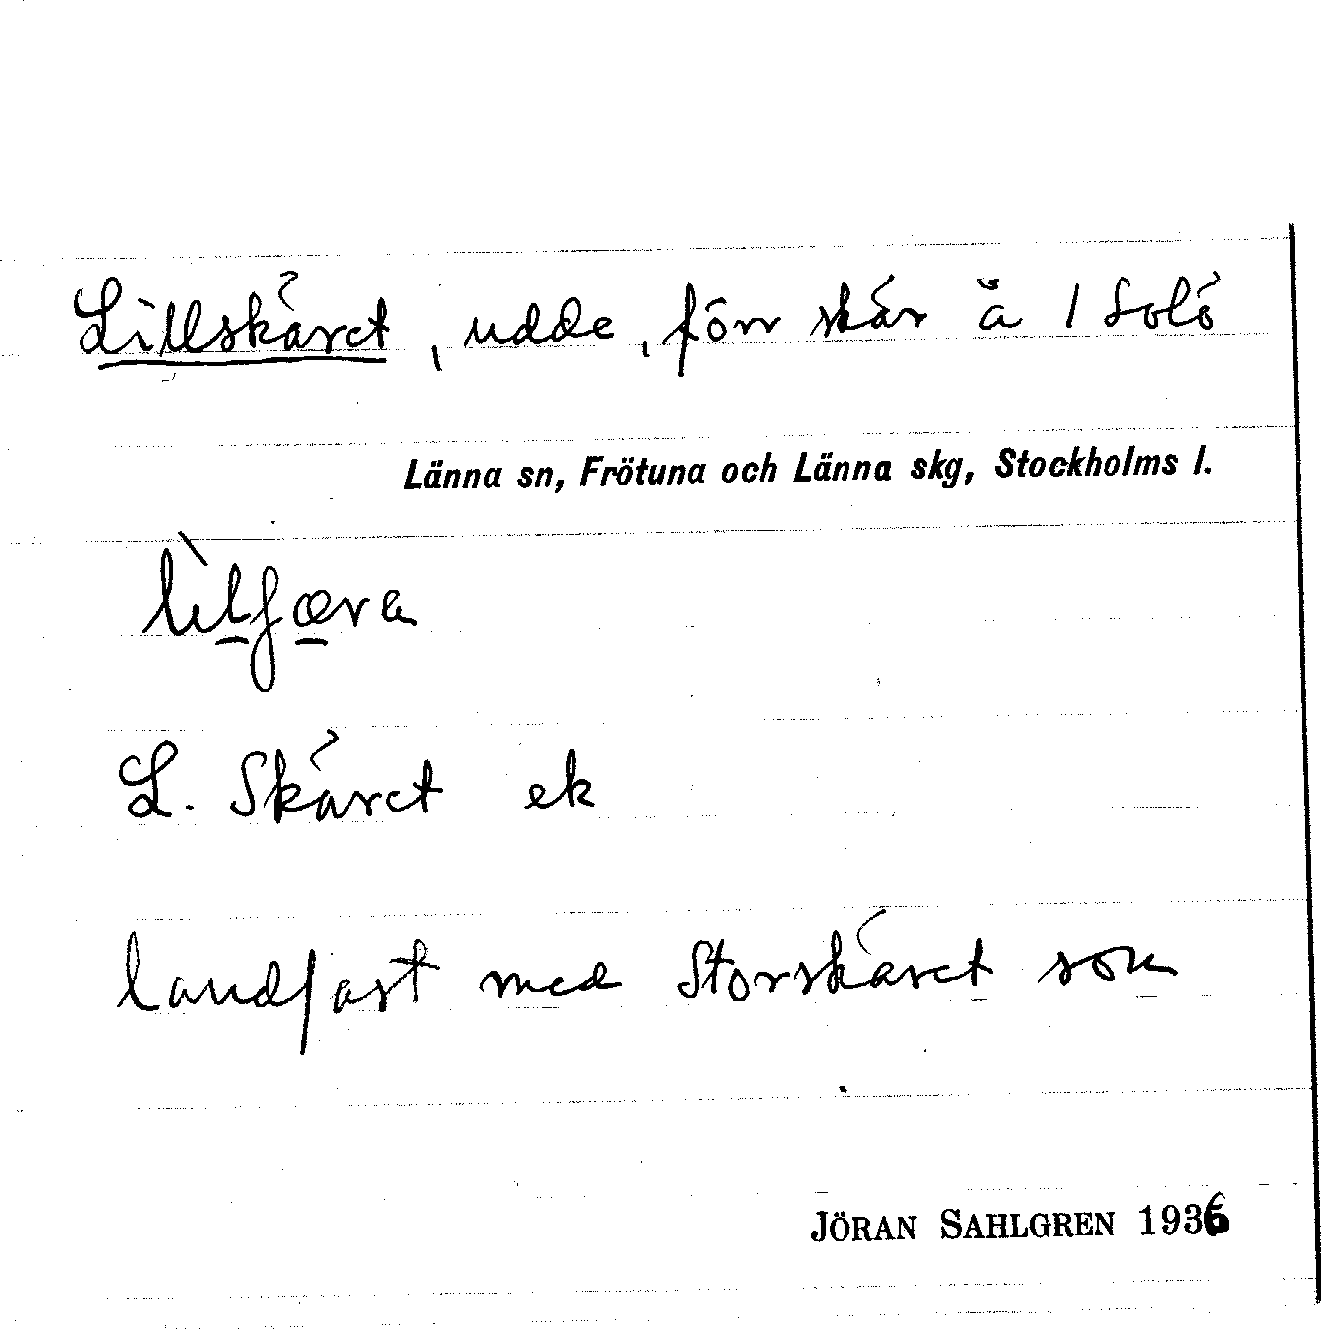 Lillskäret, udde, förr skär å 1 Solö
Länna sn, Frötuna och Länna skg, Stockholms l.
lìlʃæra
L. Skäret ek
landfast med Storskäret som
JÖRAN SAHLGREN 1936